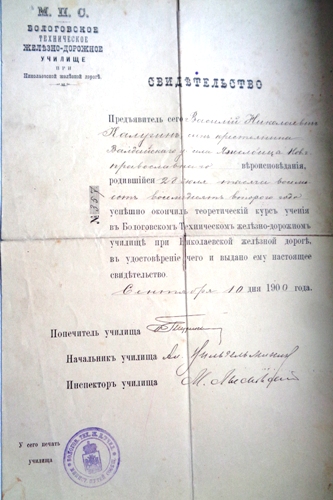 М. П. С.
БОЛОГОВСКОЕ
ТЕХНИЧЕСКОЕ
ЖЕЛѢЗНО-ДОРОЖНОЕ
УЧИЛИЩЕ
при
Николаевской желѣзной дорогѣ.
СВИДѢТЕЛЬСТВО
Предъявитель сего Василій Николаевъ
Калугинъ, изъ крестьянъ
Валдайскаго у.
православнаго вѣроисповѣданія,
родившійся 28 тысяча восемь
сотъ восемьдесятъ второго года
успѣшно окончилъ теоретическій курсъ ученія
въ Бологовскомъ Техническомъ желѣзно-дорожномъ
училищѣ при Николаевской желѣзной дорогѣ,
въ удостовѣреніе чего и выдано ему настоящее
свидѣтельство.
Сентября 10 дня 1900 года.
№ 357
Попечитель училища
Начальникъ училища
Инспекторъ училища М.
У сего печать
училища